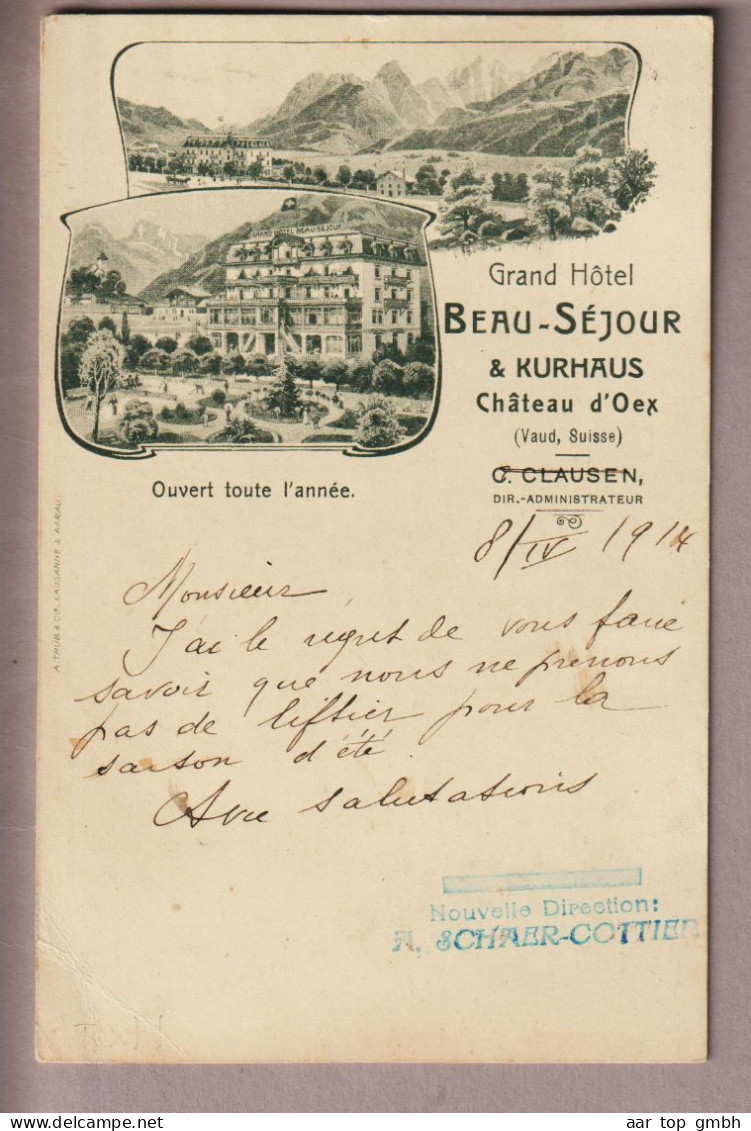 GRAND HÔTEL BEAU-SÉJOUR
Grand Hôtel
BEAU-SÉJOUR
& KURHAUS
Château d'Oex
(Vaud, Suisse)
C. CLAUSEN,
DIR.-ADMINISTRATEUR
Ouvert toute l'année.
A. TRÜB & CIE. LAUSANNE & AARAU.
8/IV 1914
Monsieur,
J'ai le regret de vous faire
savoir que nous ne prenons
pas de liftier pour la
saison d'été.
Avec salutations
Nouvelle Direction:
A. SCHAER-COTTIER
aar top gmbh